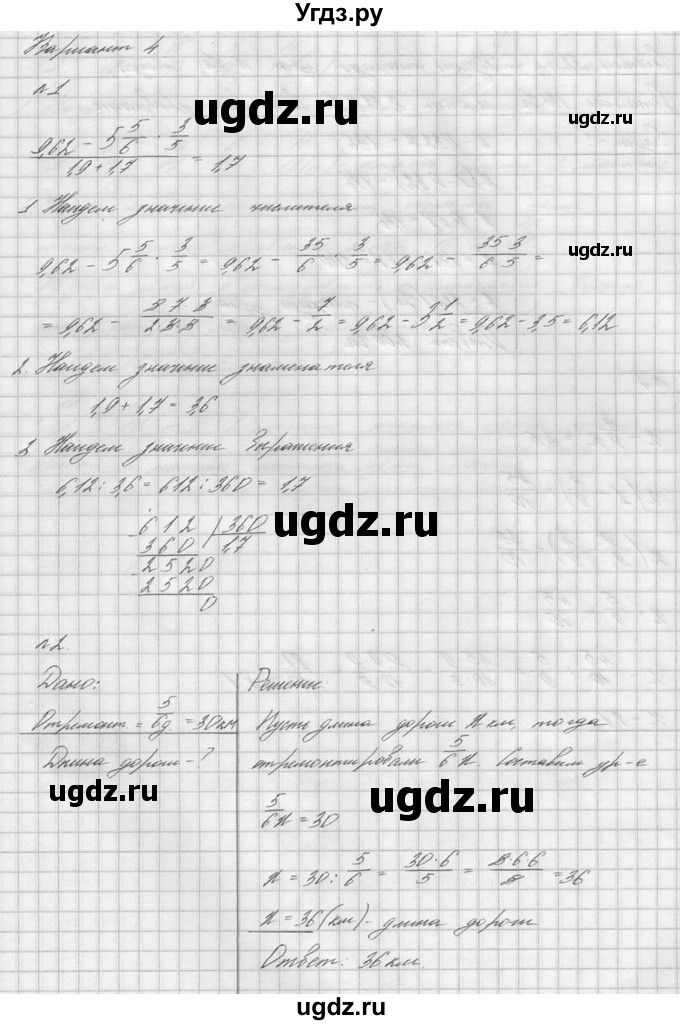 Угдз.ру
Вариант 4.
ugdz.ru
№1
9,62 - 5 5/6 · 3/5
1,9 + 1,7 = 1,7
ugdz.ru
1 Найдем значение числителя
9,62 - 5 5/6 · 3/5 = 9,62 - 35/6 · 3/5 = 9,62 - 35·3/6·5 =
ugdz.ru
= 9,62 - = 9,62 - 7/2 = 9,62 - 3 1/2 = 9,62 - 3,5 = 6,12
2. Найдем значение знаменателя
1,9 + 1,7 = 3,6
ugdz.ru
3 Найдем значение выражения
6,12 : 3,6 = 612 : 360 = 1,7
612 | 360
360 1,7
2520
2520
0
ugdz.ru
№2.
Дано:
Отремонт = 5/6 д. = 30 км
Длина дороги - ?
ugdz.ru
Решение:
Пусть длина дороги x км, тогда
отремонтировали 5/6 x. Составим ур-е
5/6 x = 30
ugdz.ru
x = 30 : 5/6 = 30·6/5 = 5·6·6/5 = 36
x = 36 (км) - длина дороги
Ответ: 36 км.
ugdz.ru